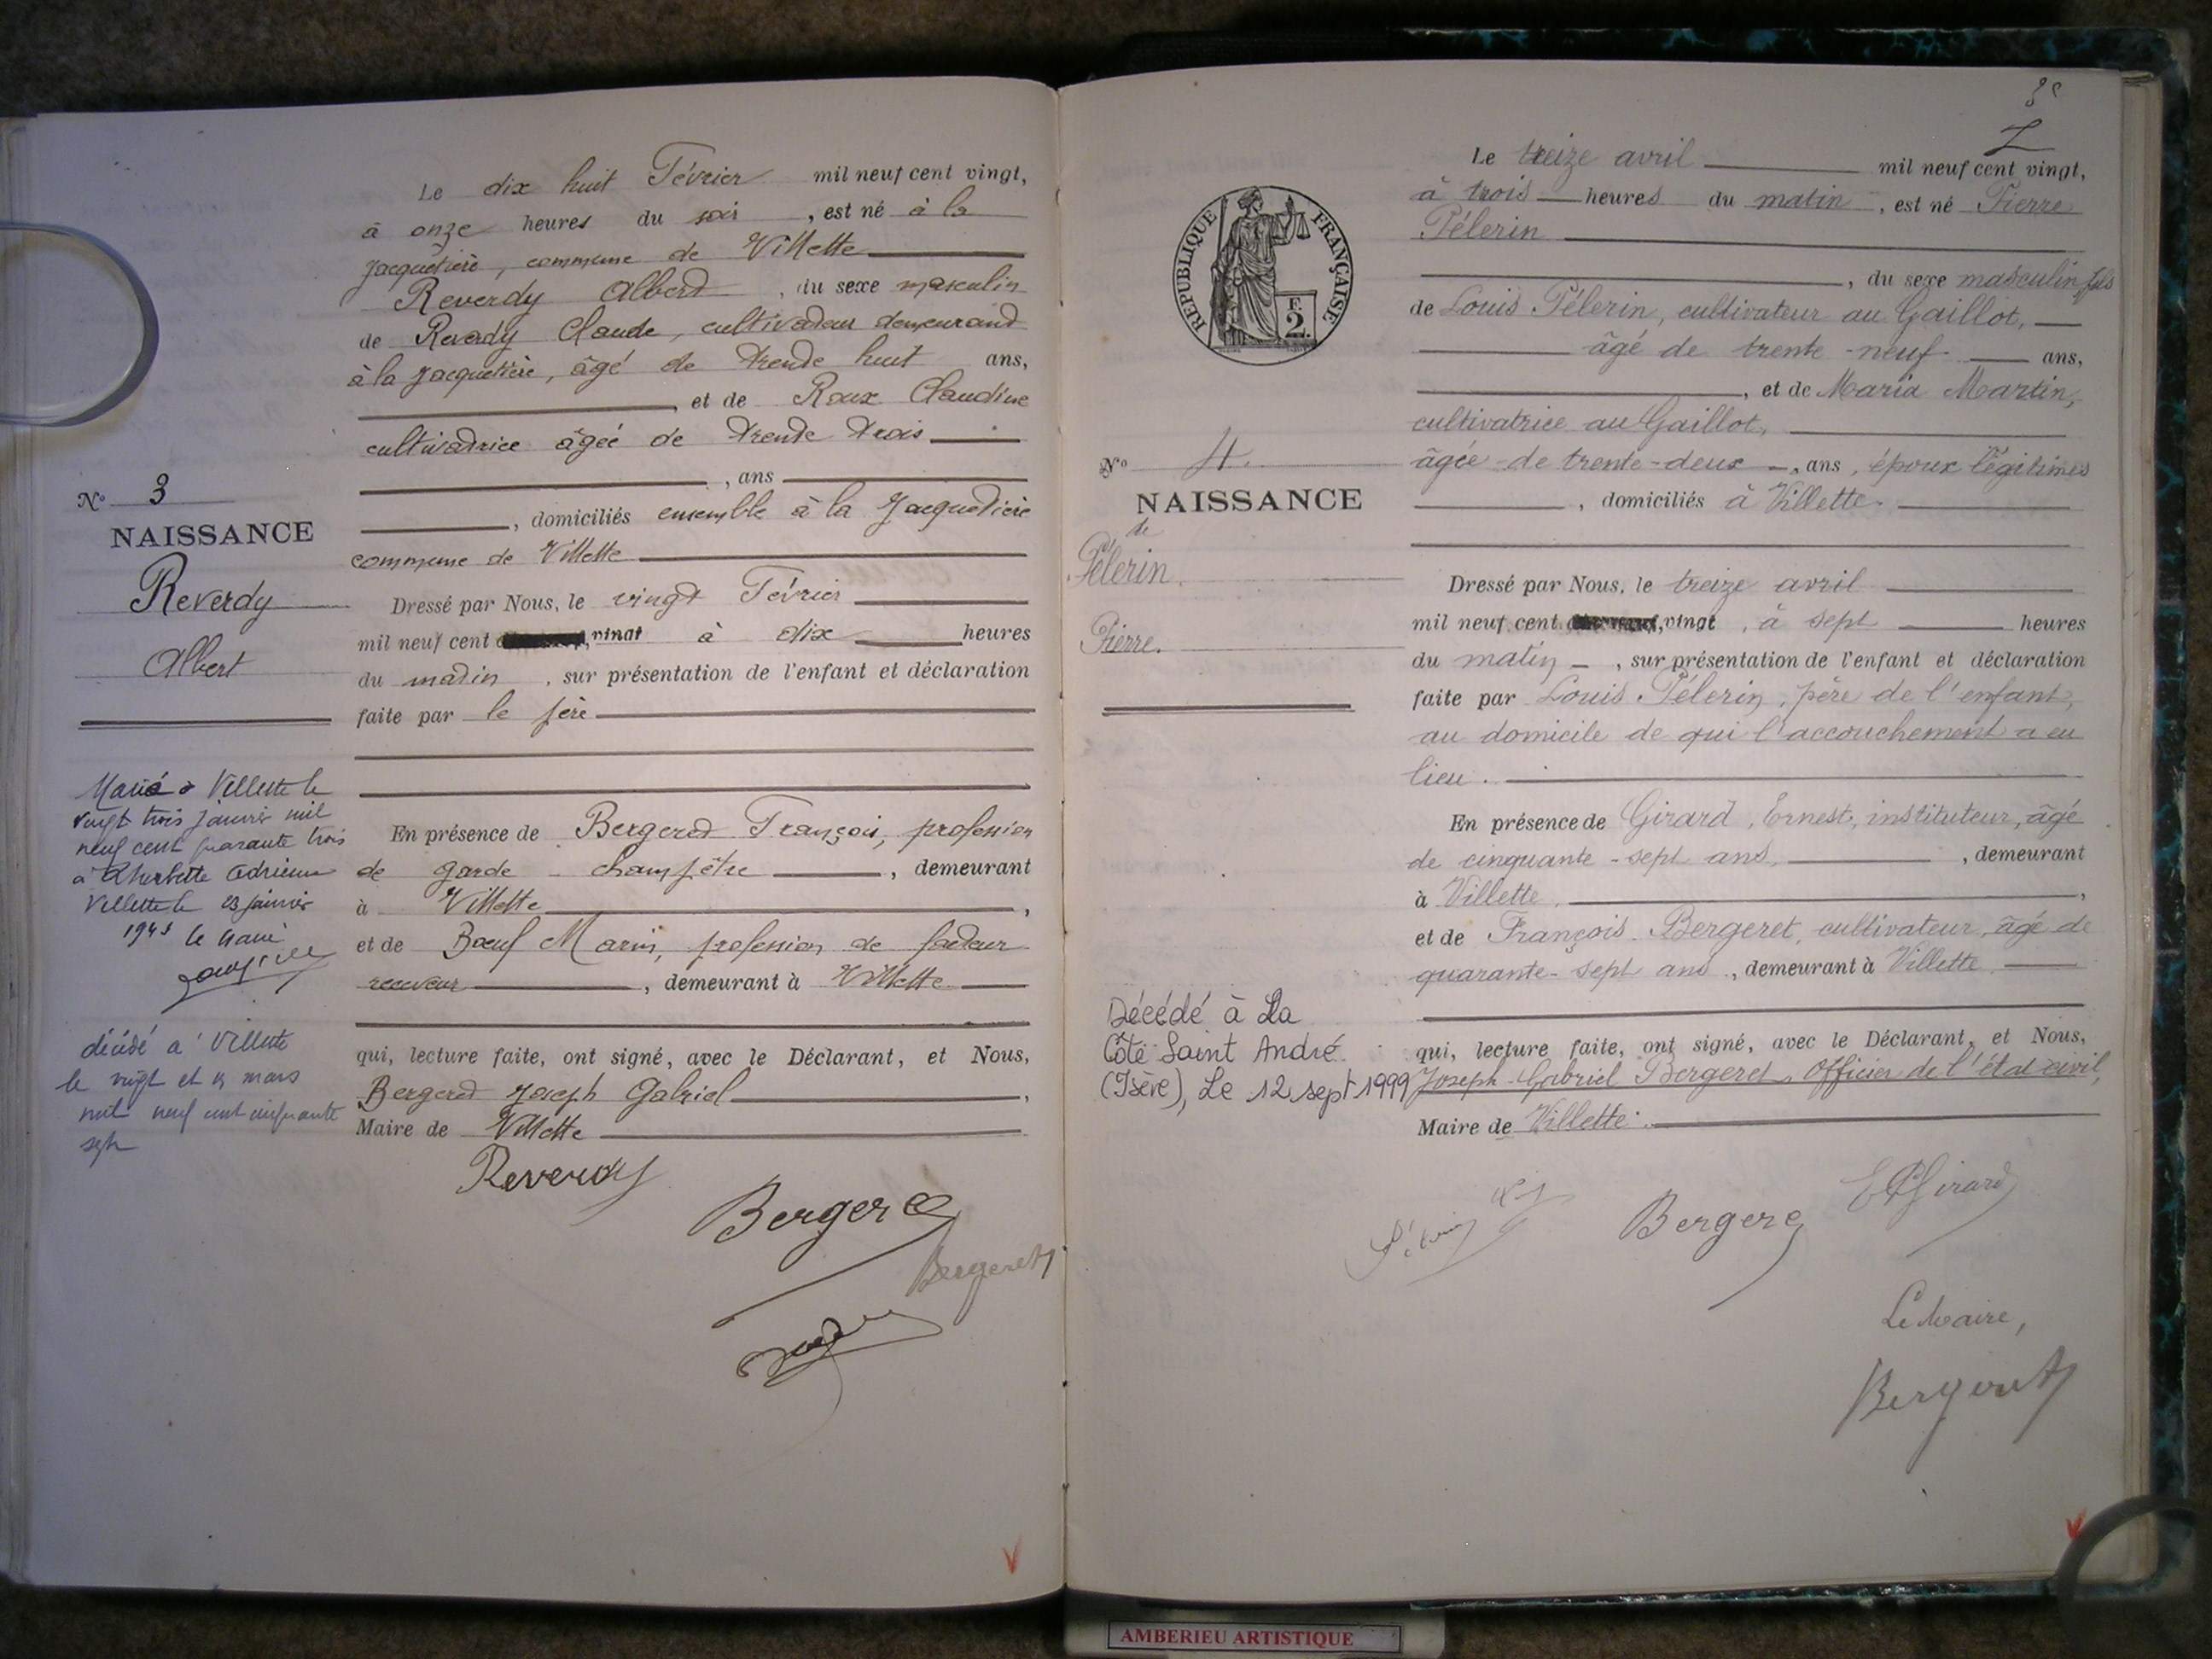 Le dix huit Février mil neuf cent vingt,
à onze heures du soir, est né à la
Jacquetière, commune de Villette
Reverdy Albert, du sexe masculin
de Reverdy Claude, cultivateur demeurant
à la Jacquetière, âgé de trente huit ans,
, et de Roux Claudine
cultivatrice âgée de trente trois
, ans
, domiciliés ensemble à la Jacquetière
commune de Villette
Dressé par Nous, le vingt Février
mil neuf cent vingt à dix heures
du matin, sur présentation de l'enfant et déclaration
faite par le père
En présence de Bergeret François, profession
de garde champêtre, demeurant
à Villette,
et de Bœuf Marin, profession de facteur
receveur, demeurant à Villette
qui, lecture faite, ont signé, avec le Déclarant, et Nous,
Bergeret Joseph Gabriel,
Maire de Villette
Reverdy
Bergeret
Bergeret
N° 3
NAISSANCE
Reverdy
Albert
Marié à Villette le
vingt trois janvier mil
neuf cent quarante trois
à Adrienne
Villette le 23 janvier
1943 le
décédé à Villette
le vingt et un mars
mil neuf cent cinquante
sept
3e
RÉPUBLIQUE FRANÇAISE
F.
2.
Le treize avril mil neuf cent vingt,
à trois heures du matin, est né Pierre
Pélerin
, du sexe masculin fils
de Louis Pélerin, cultivateur au Gaillot,
âgé de trente-neuf ans,
, et de Maria Martin,
cultivatrice au Gaillot,
âgée de trente-deux, ans, époux légitimes
, domiciliés à Villette.
Dressé par Nous, le treize avril
mil neuf cent vingt, à sept heures
du matin, sur présentation de l'enfant et déclaration
faite par Louis Pélerin, père de l'enfant,
au domicile de qui l'accouchement a eu
lieu.
En présence de Girard, Ernest, instituteur, âgé
de cinquante-sept ans, demeurant
à Villette,
et de François Bergeret, cultivateur, âgé de
quarante-sept ans, demeurant à Villette
qui, lecture faite, ont signé, avec le Déclarant, et Nous,
Joseph-Gabriel Bergeret, Officier de l'état civil,
Maire de Villette.
Pélerin
Bergeret
E Girard
Le Maire,
Bergeret
N° 4.
NAISSANCE
de
Pélerin.
Pierre.
Décédé à La
Côte Saint André
(Isère), le 12 sept 1999
AMBERIEU ARTISTIQUE